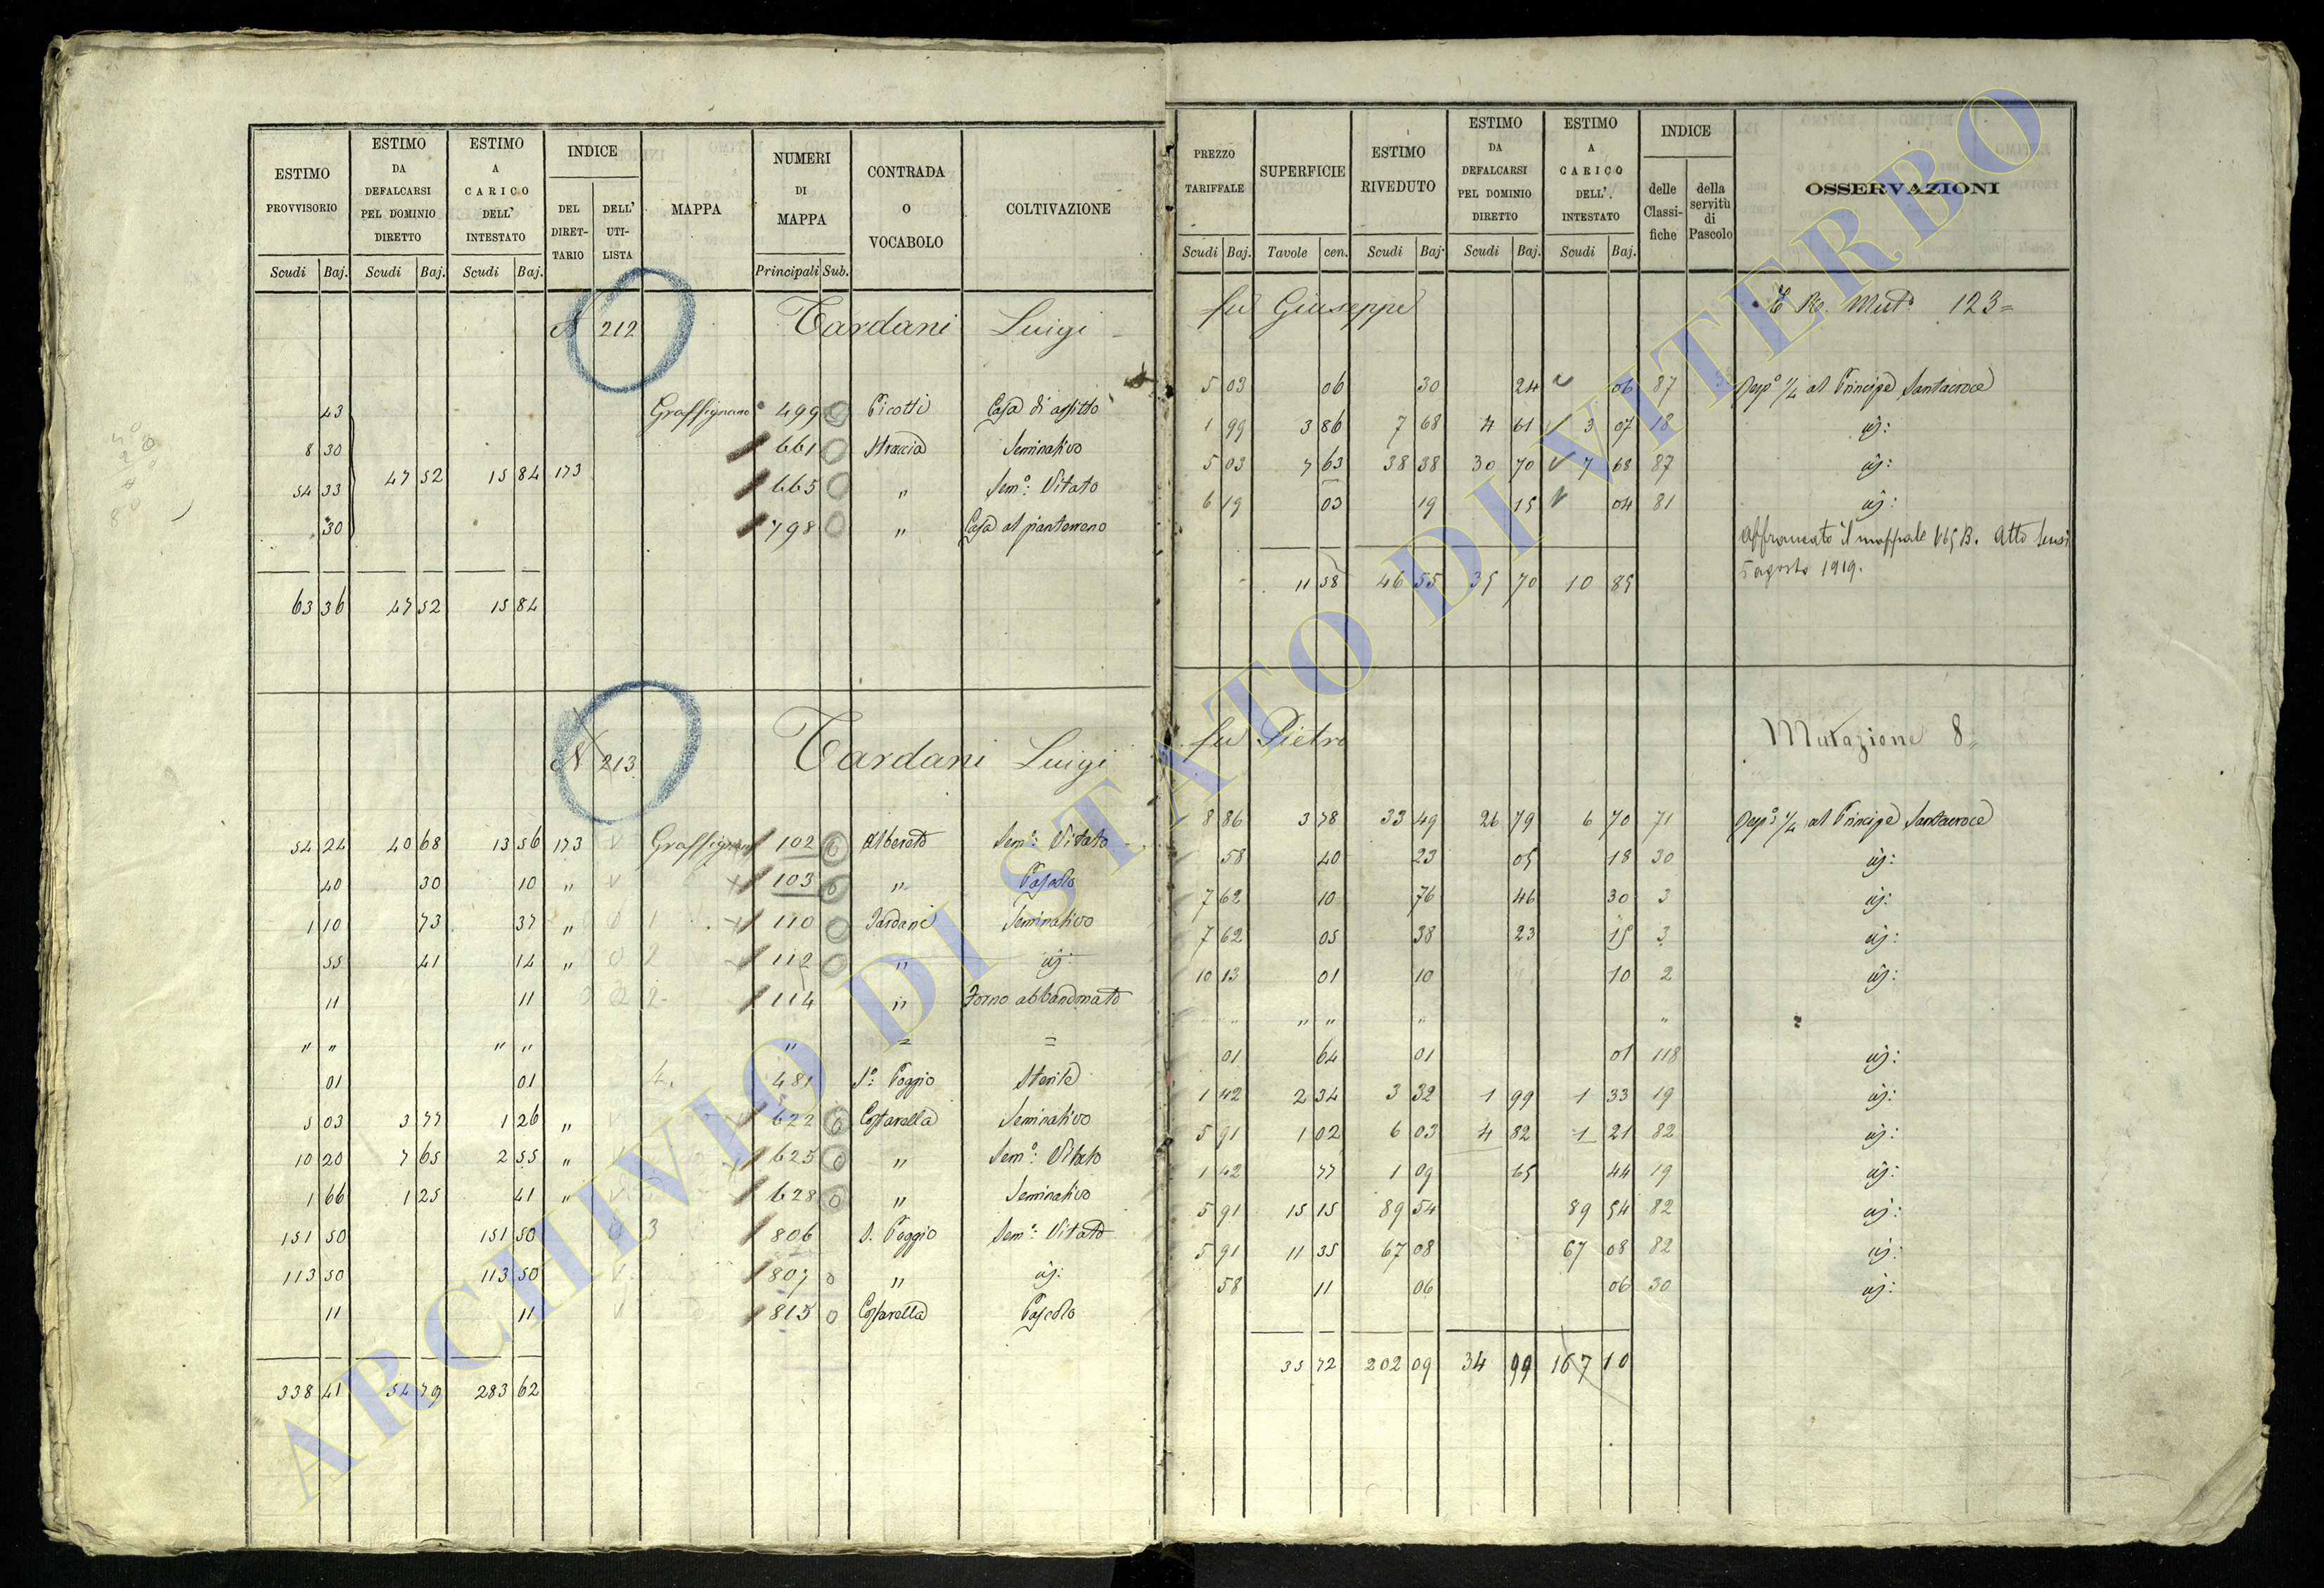 ESTIMO PROVVISORIO
ESTIMO DA DEFALCARSI PEL DOMINIO DIRETTO
ESTIMO A CARICO DELL' INTESTATO
INDICE
DEL DIRETTARIO
DELL' UTILISTA
MAPPA
NUMERI DI MAPPA
CONTRADA O VOCABOLO
COLTIVAZIONE
Scudi Baj. Scudi Baj. Scudi Baj. Principali Sub.
N 212 Tardani Luigi
43 Graffignano 499 Picotti Casa di affitto
8 30 661 Straccia Seminativo
47 52 15 84 173
54 33 665 " Sem.o: Vitato
30 798 " Casa al pianterreno
63 36 47 52 15 84
N 213 Tardani Luigi
54 24 40 68 13 56 173 102 Alberato Sem.o: Vitato
40 30 10 " 103 " Pascolo
1 10 73 37 " 110 Tardani Seminativo
55 41 14 " 112 " id:
11 11 114 " Forno abbandonato
" " " " " = =
01 01 481 S.o: Poggio Sterile
5 03 3 77 1 26 " 622 Costarella Seminativo
10 20 7 65 2 55 " 625 " Sem.o: Vitato
1 66 1 25 41 " 628 " Seminativo
151 50 151 50 806 S. Poggio Sem.o: Vitato
113 50 113 50 807 " id:
11 11 815 Costarella Pascolo
338 41 54 79 283 62
PREZZO TARIFFALE
SUPERFICIE
ESTIMO RIVEDUTO
ESTIMO DA DEFALCARSI PEL DOMINIO DIRETTO
ESTIMO A CARICO DELL' INTESTATO
INDICE
delle Classifiche
della servitù di Pascolo
OSSERVAZIONI
Scudi Baj. Tavole cen. Scudi Baj. Scudi Baj. Scudi Baj.
fu Giuseppe 123=
5 03 06 30 24 06 87 Risp.a 1/4 al Principe Santacroce
1 99 3 86 7 68 4 61 3 07 18 id:
5 03 7 63 38 38 30 70 7 68 87 id:
6 19 03 19 15 04 81 id:
Affrancato il mappale Atto
5 agosto 1919.
11 58 46 55 35 70 10 85
fu Pietro Mutazione 8=
8 86 3 78 33 49 26 79 6 70 71 Risp.a 1/4 al Principe Santacroce
58 40 23 05 18 30 id:
7 62 10 76 46 30 3 id:
7 62 05 38 23 15 3 id:
10 13 01 10 10 2 id:
" " " " " "
01 64 01 01 118 id:
1 42 2 34 3 32 1 99 1 33 19 id:
5 91 1 02 6 03 4 82 1 21 82 id:
1 42 77 1 09 65 44 19 id:
5 91 15 15 89 54 89 54 82 id:
5 91 11 35 67 08 67 08 82 id:
58 11 06 06 30 id:
35 72 202 09 34 99 167 10
ARCHIVIO DI STATO DI VITERBO